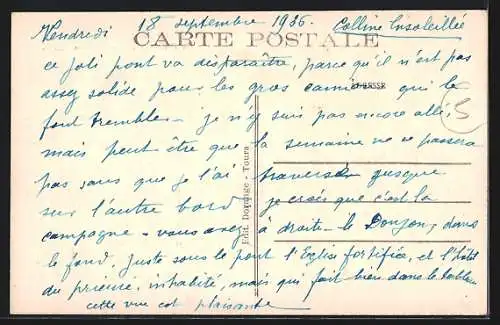 Vendredi 18 septembre 1936. Colline Ensoleillée
CARTE POSTALE
ce joli pont va disparaître, parce qu'il n'est pas
assez solide pour les gros camions qui le
font trembler - je n'y suis pas encore allé,
mais peut être que la semaine ne se passera
pas sans que je l'ai traversé jusque
sur l'autre bord je crois que c'est la
campagne - vous avez à droite le Donjon, dans
le fond, juste sous le pont l'Eglise fortifiée, et l'hôtel
du prieuré, inhabité, mais qui fait bien dans le tableau
cette vue est plaisante
Edit. Dorange - Tours
5